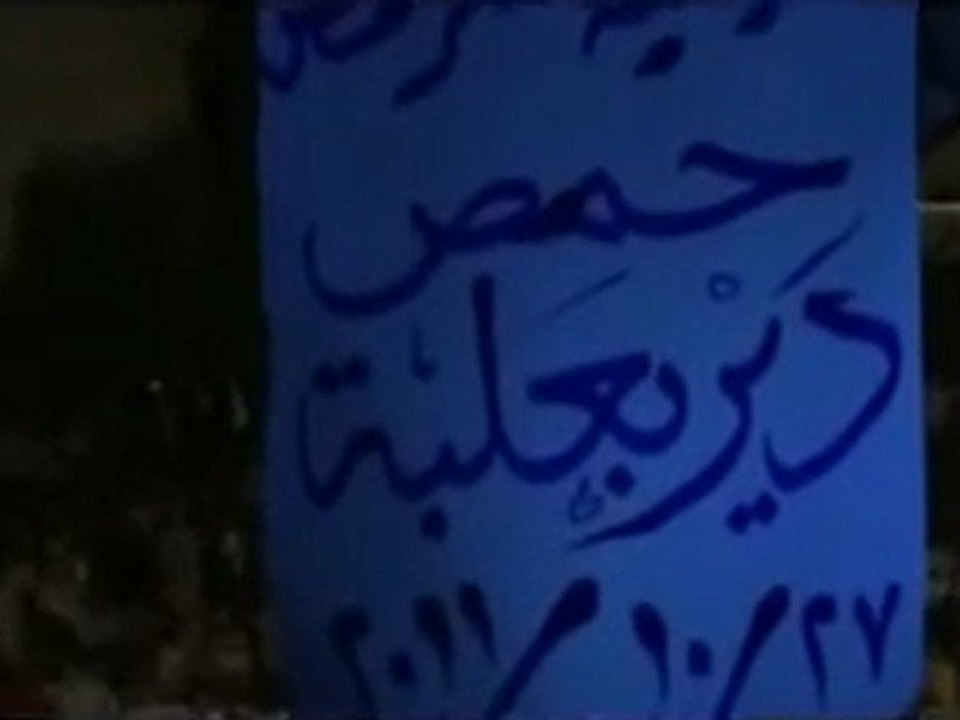 حمص
دَيْر بعَلبة
٢٧/١٠/٢٠١١